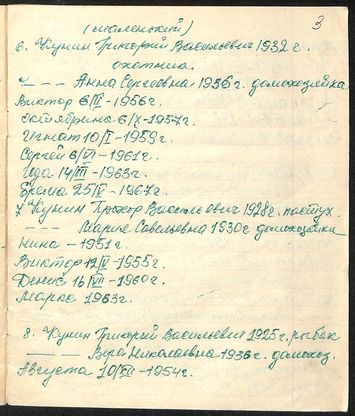 3
(смоленский)
6. Кунин Григорий Васильевич 1932 г.
охотник.
– – – Анна Сергеевна 1936 г. домохозяйка
Виктор 6/II – 1956 г.
Октябрина 6/X – 1957 г.
Игнат 10/I – 1959 г.
Сергей 6/VI – 1961 г.
Ида 14/III – 1963 г.
25/IV – 1967 г.
7. Кунин Прохор Васильевич 1928 г. пастух.
– – – Мария Савельевна 1930 г. домохозяйка
Нина – 1951 г.
Виктор 12/V – 1955 г.
Денис 16/VII – 1960 г.
Марке 1963 г.
8. Кунин Григорий Васильевич 1925 г. рыбак
– – – Вера Николаевна 1936 г. домохоз.
Августа 20/XII – 1954 г.